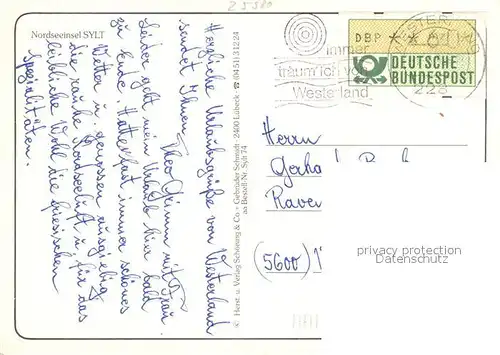 Z 5580
Nordseeinsel SYLT
Herzliche Urlaubsgrüße von Westerland
sendet Ihnen
Theo Grimm mit Frau.
Leider geht mein Urlaub hier bald
zu Ende. Hatte fast immer schönes
Wetter u. genossen ausgiebig
die rauhe Nordseeluft u. für das
leibliche Wohl die friesischen
Spezialitäten.
© Herst. u. Verlag Schöning & Co. + Gebrüder Schmidt · 2400 Lübeck · ☎ (0451) 31224
Bestell-Nr. Sylt 74
immer
träum ich von
Westerland
DBP
DEUTSCHE
BUNDESPOST
228
Herrn
(5600)
privacy protection
Datenschutz